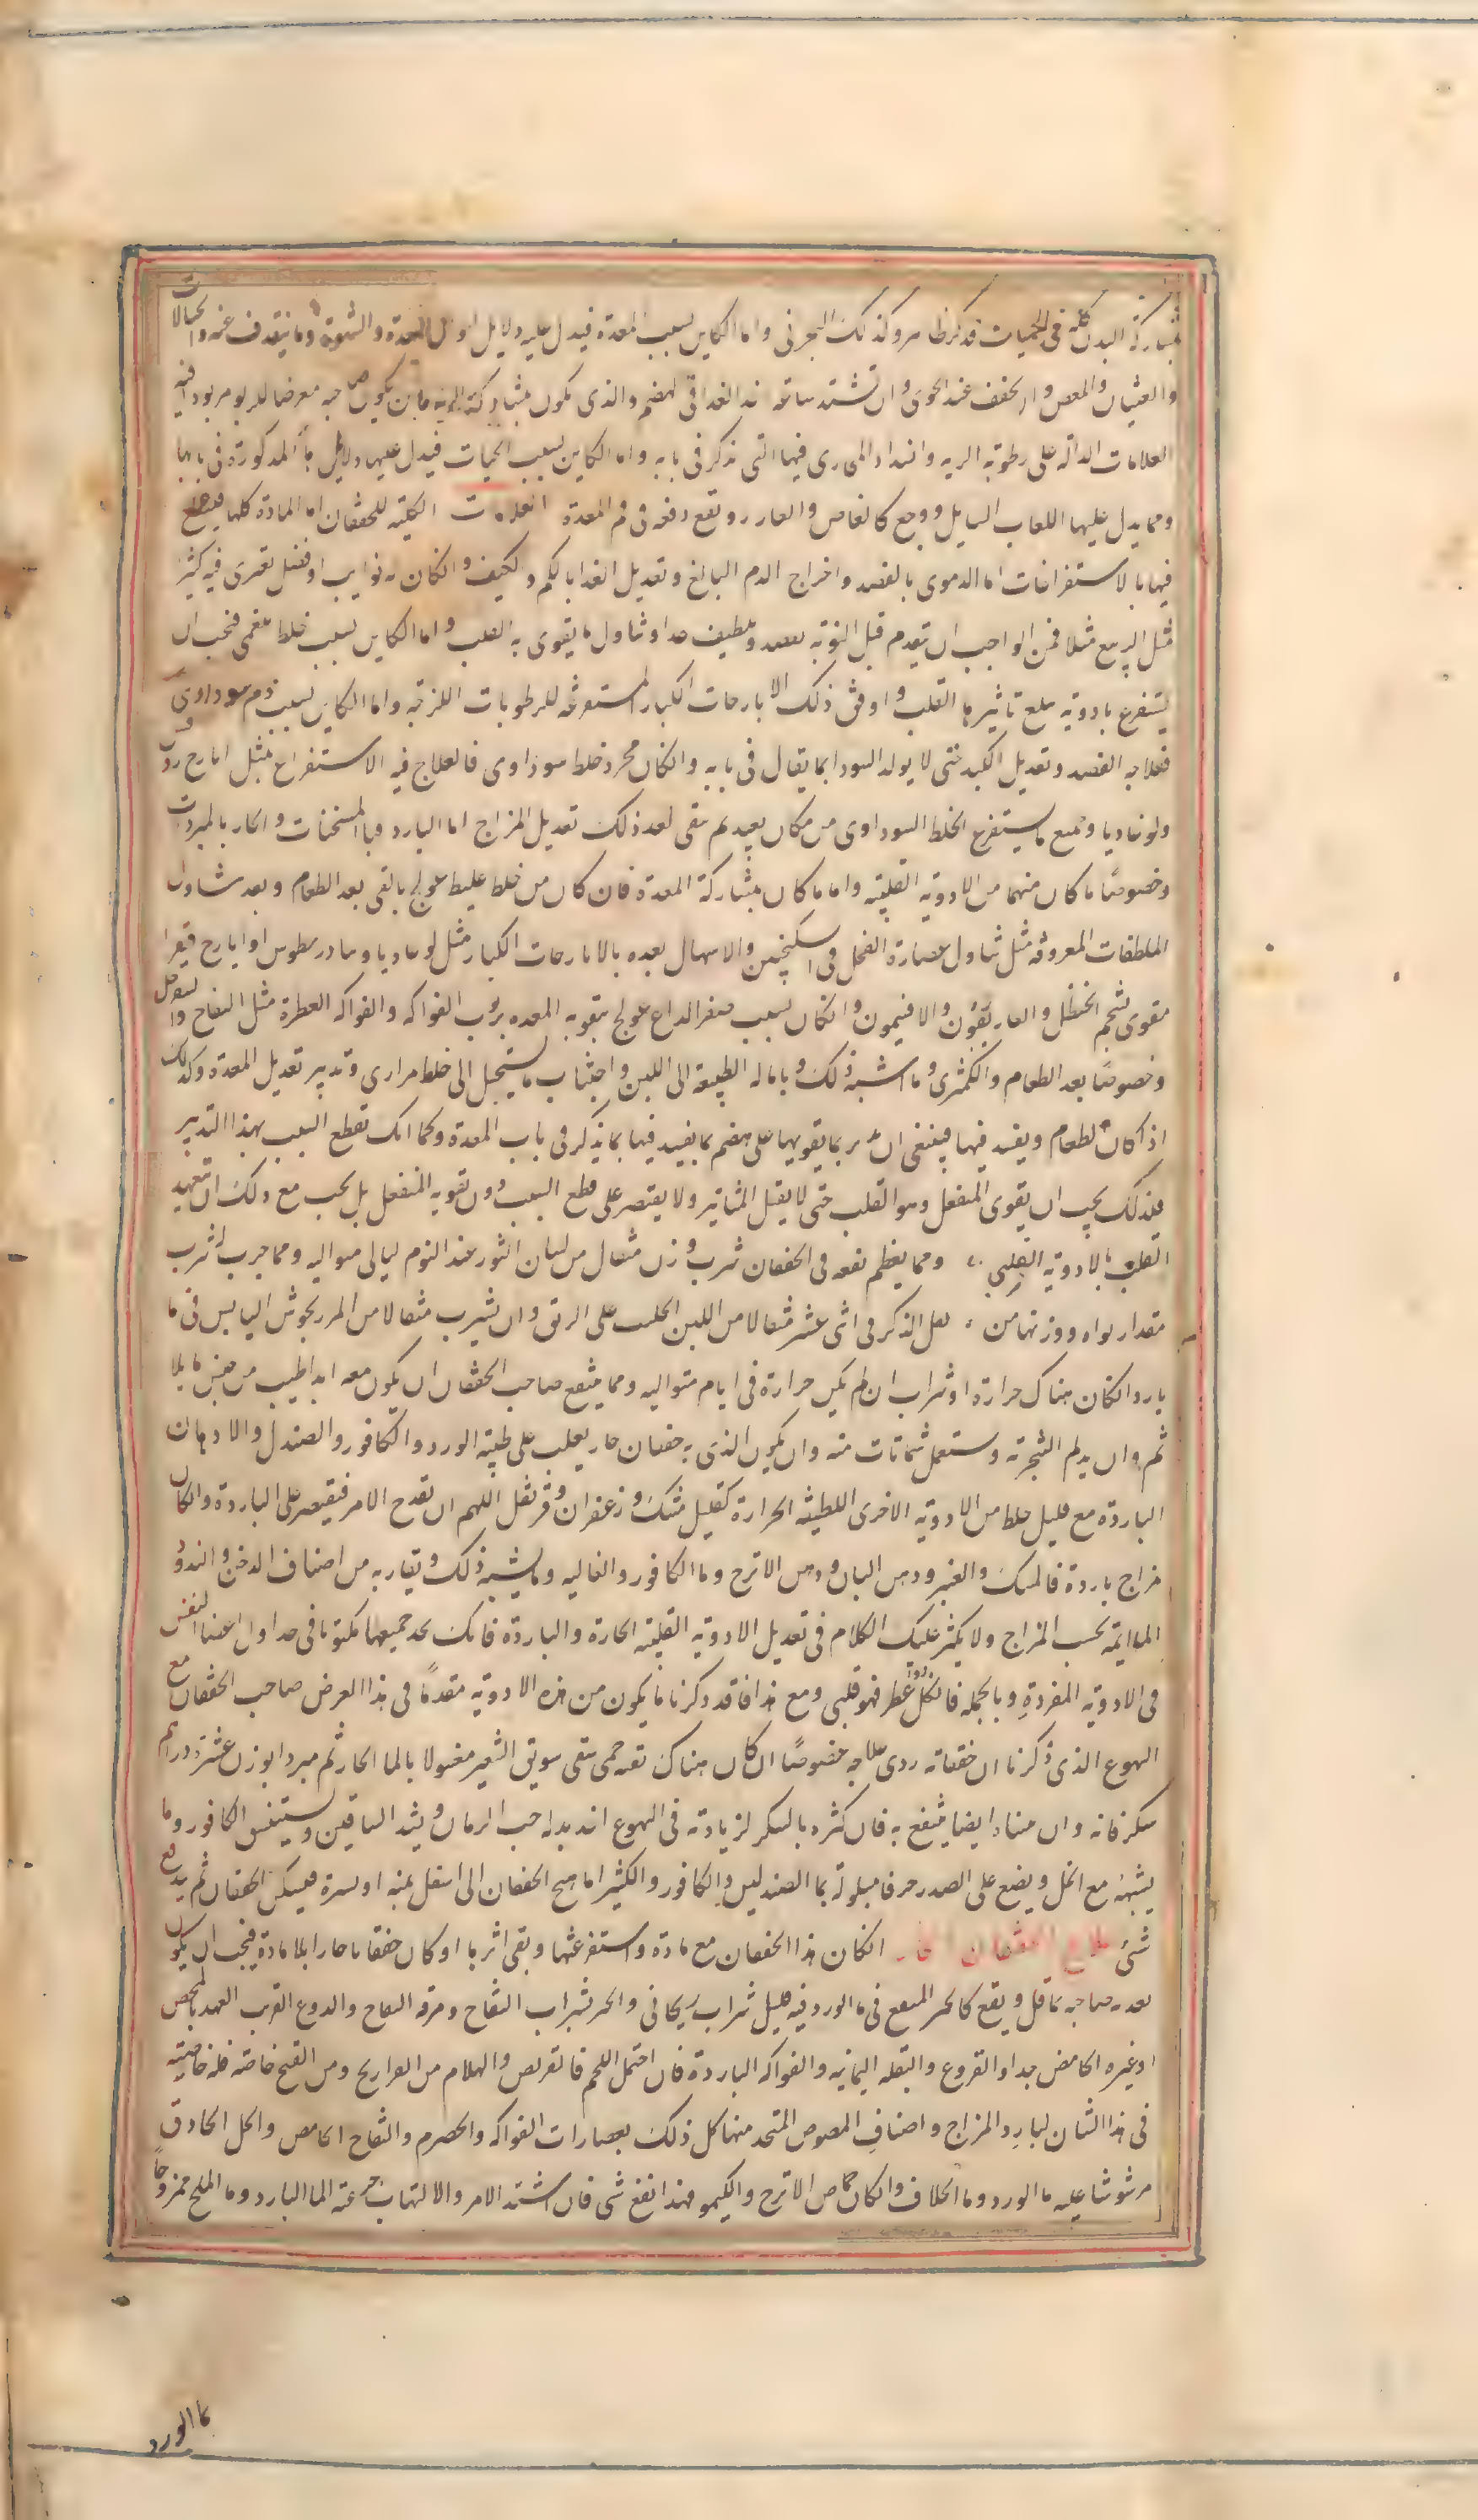 بمشاركة البدن كله فى الحميات فذكره ظاهر وكذلك البحرانى واما الكاين بسبب المعدة فيدل عليه دلايل احوال المعدة والشهوة وما يتقدف عنه والخيالات
والغثيان والمغص وان يخفف عند الخوى وان تشتد ساعة الغذا فى الهضم والذى يكون بمشاركة الرية فان يكون صاحبه معرضا للربو موجودا فيه
العلامات الدالة على رطوبة الرية وانسداد المجارى فيها التى تذكر فى بابه واما الكاين بسبب الحيات فيدل عليها دلايلها المذكورة فى بابها
ومما يدل عليها اللعاب السايل ووجع كالعاض والعارر ويقع دفعة فى فم المعدة الكلية للخفقان اما المادة كلها فيعالج
فيها بالاستفراغات اما الدموى بالفصد واخراج الدم البالغ وتعديل الغذا بالكم والكيف وانكان له نوايب او فصل تعترى فيه كثيرا
مثل الربيع مثلا فمن الواجب ان يقدم قبل النوبة بفصد وتلطيف غذا وتناول ما يقوى به القلب واما الكاين بسبب خلط بلغمى فيجب ان
يستفرغ بادوية يبلغ تاثيرها القلب واوفق ذلك الايارجات الكبار المستفرغة للرطوبات اللزجة واما الكاين بسبب دم سوداوى
فعلاجه الفصد وتعديل الكبد حتى لا يولد السودا بما يقال فى بابه وانكان مجرد خلط سوداوى فالعلاج فيه الاستفراغ بمثل ايارج روفس
ولوغاديا وجميع ما يستفرغ الخلط السوداوى من مكان بعيد ثم يبقى بعد ذلك تعديل المزاج اما البارد فبالمسخنات والحار بالمبردات
وخصوصًا ما كان منهما من الادوية القلبية واما ما كان بمشاركة المعدة فان كان من خلط غليظ عولج بالقى بعد الطعام وبعد تناول
الملطفات المعروفة مثل تناول عصارة الفجل فى السكنجبين والاسهال بعده بالايارجات الكبار مثل لوغاديا وتيادريطوس او ايارج فيقرا
مقوى بشحم الحنظل والغاريقون والافتيمون وانكان بسبب صفرا لذاع عولج بتقوية المعدة بربوب الفواكه والفواكه العطرة مثل التفاح والسفرجل
وخصوصًا بعد الطعام والكمثرى وما اشبه ذلك وبامالة الطبيعة الى اللين واجتناب ما يستحيل الى خلط مرارى وتدبير تعديل المعدة وكذلك
اذا كان الطعام ويفسد فيها فينبغى ان يدبر بما يقويها على هضم ما يفسد فيها بما يذكر فى باب المعدة وكما انك تقطع السبب بهذا التدبير
فكذلك يجب ان يقوى المنفعل وهو القلب حتى لا يقبل التاثير ولا يقتصر على قطع السبب دون تقوية المنفعل بل يجب مع ذلك ان تتعهد
القلب بالادوية القلبية ومما يعظم نفعه فى الخفقان شرب وزن مثقال من لسان الثور عند النوم ليالى متواليه ومما جرب شرب
مقدار نواة ووزنها من الذكر فى اثنى عشر مثقالا من اللبن الحليب على الريق وان يشرب مثقالا من المرزنجوش اليابس فى ما
بارد انكان هناك حرارة او شراب ان لم يكن حرارة فى ايام متواليه ومما ينتفع صاحب الخفقان ان يكون معه ابدا طيب من جنس ما يلايم
وان يديم التبخر به ويستعمل شمامات منه وان يكون الذى به خفقان حار يغلب على طيبه الورد والكافور والصندل والادهان
الباردة مع قليل خلط من الادوية الاخرى اللطيفة الحرارة كقليل مسك وزعفران وقرنفل اللهم ان يقدح الامر فيقتصر على الباردة وانكان
مزاج باردة فالمسك والعنبر ودهن البان ودهن الاترج وما الكافور والغاليه وما يشبه ذلك ويقاربه من اصناف الدخن والندود
الملايمة بحسب المزاج ولا يكثر عليك الكلام فى تعديل الادوية القلبية الحارة والباردة فانك تجد جميعها مكتوبا فى جداول اعضا النفس
فى الادوية المفردة وبالجملة فان كل دوا عطر فهو قلبى ومع هذا فاقد ذكرنا ما يكون من هذه الادوية مقدمًا فى هذا الغرض صاحب الخفقان مع
التهوع الذى ذكرنا ان خفقانه ردى علاجه خصوصًا ان كان هناك بقية حمى يسقى سويق الشعير مغسولا بالما الحار ثم مبردا بوزن عشرة دراهم
سكر فانه وان ايضا ينتفع به فان كثره بالسكر لزيادته فى التهوع اخذ بدله حب الرمان ويشد الساقين ويستنشق الكافور وما
يشبهه مع الخل ويضع على الصدر خرقا مبلولة بما الصندلين والكافور والكثيرا ما يهيج الخفقان الى اسفل يمنة او يسرة فيسكن الخفقان ثم يدفع
شى علاج الخفقان الحار انكان هذا الخفقان مع مادة واستفرغتها وبقى اثرها او كان خفقانا حارا بلا مادة فيجب ان يكون
تغديه صاحبه بما قل ونفع كالخبز المنقع فى ما الورد فيه قليل شراب ريحانى والخبز بشراب التفاح ومرقة التفاح والدوغ القريب العهد بالمخض
او غيره الحامض جدا والقروع والبقلة اليمانيه والفواكه الباردة فان احتمل اللحم فالقريص والهلام من الفراريج ومن القبج خاصة فله خاصية
فى هذا الشان لبارد المزاج واصناف المصوص المتخذ منها كل ذلك بعصارات الفواكه والحصرم والتفاح الحامض والخل الحاذق
مرشوشا عليه ما الورد وما الخلاف وانكان حماض الاترج والليمو فهذا انفع شى فان اشتد الامر والالتهاب جرعته الما البارد وما الثلج ممزوجًا
بما الورد